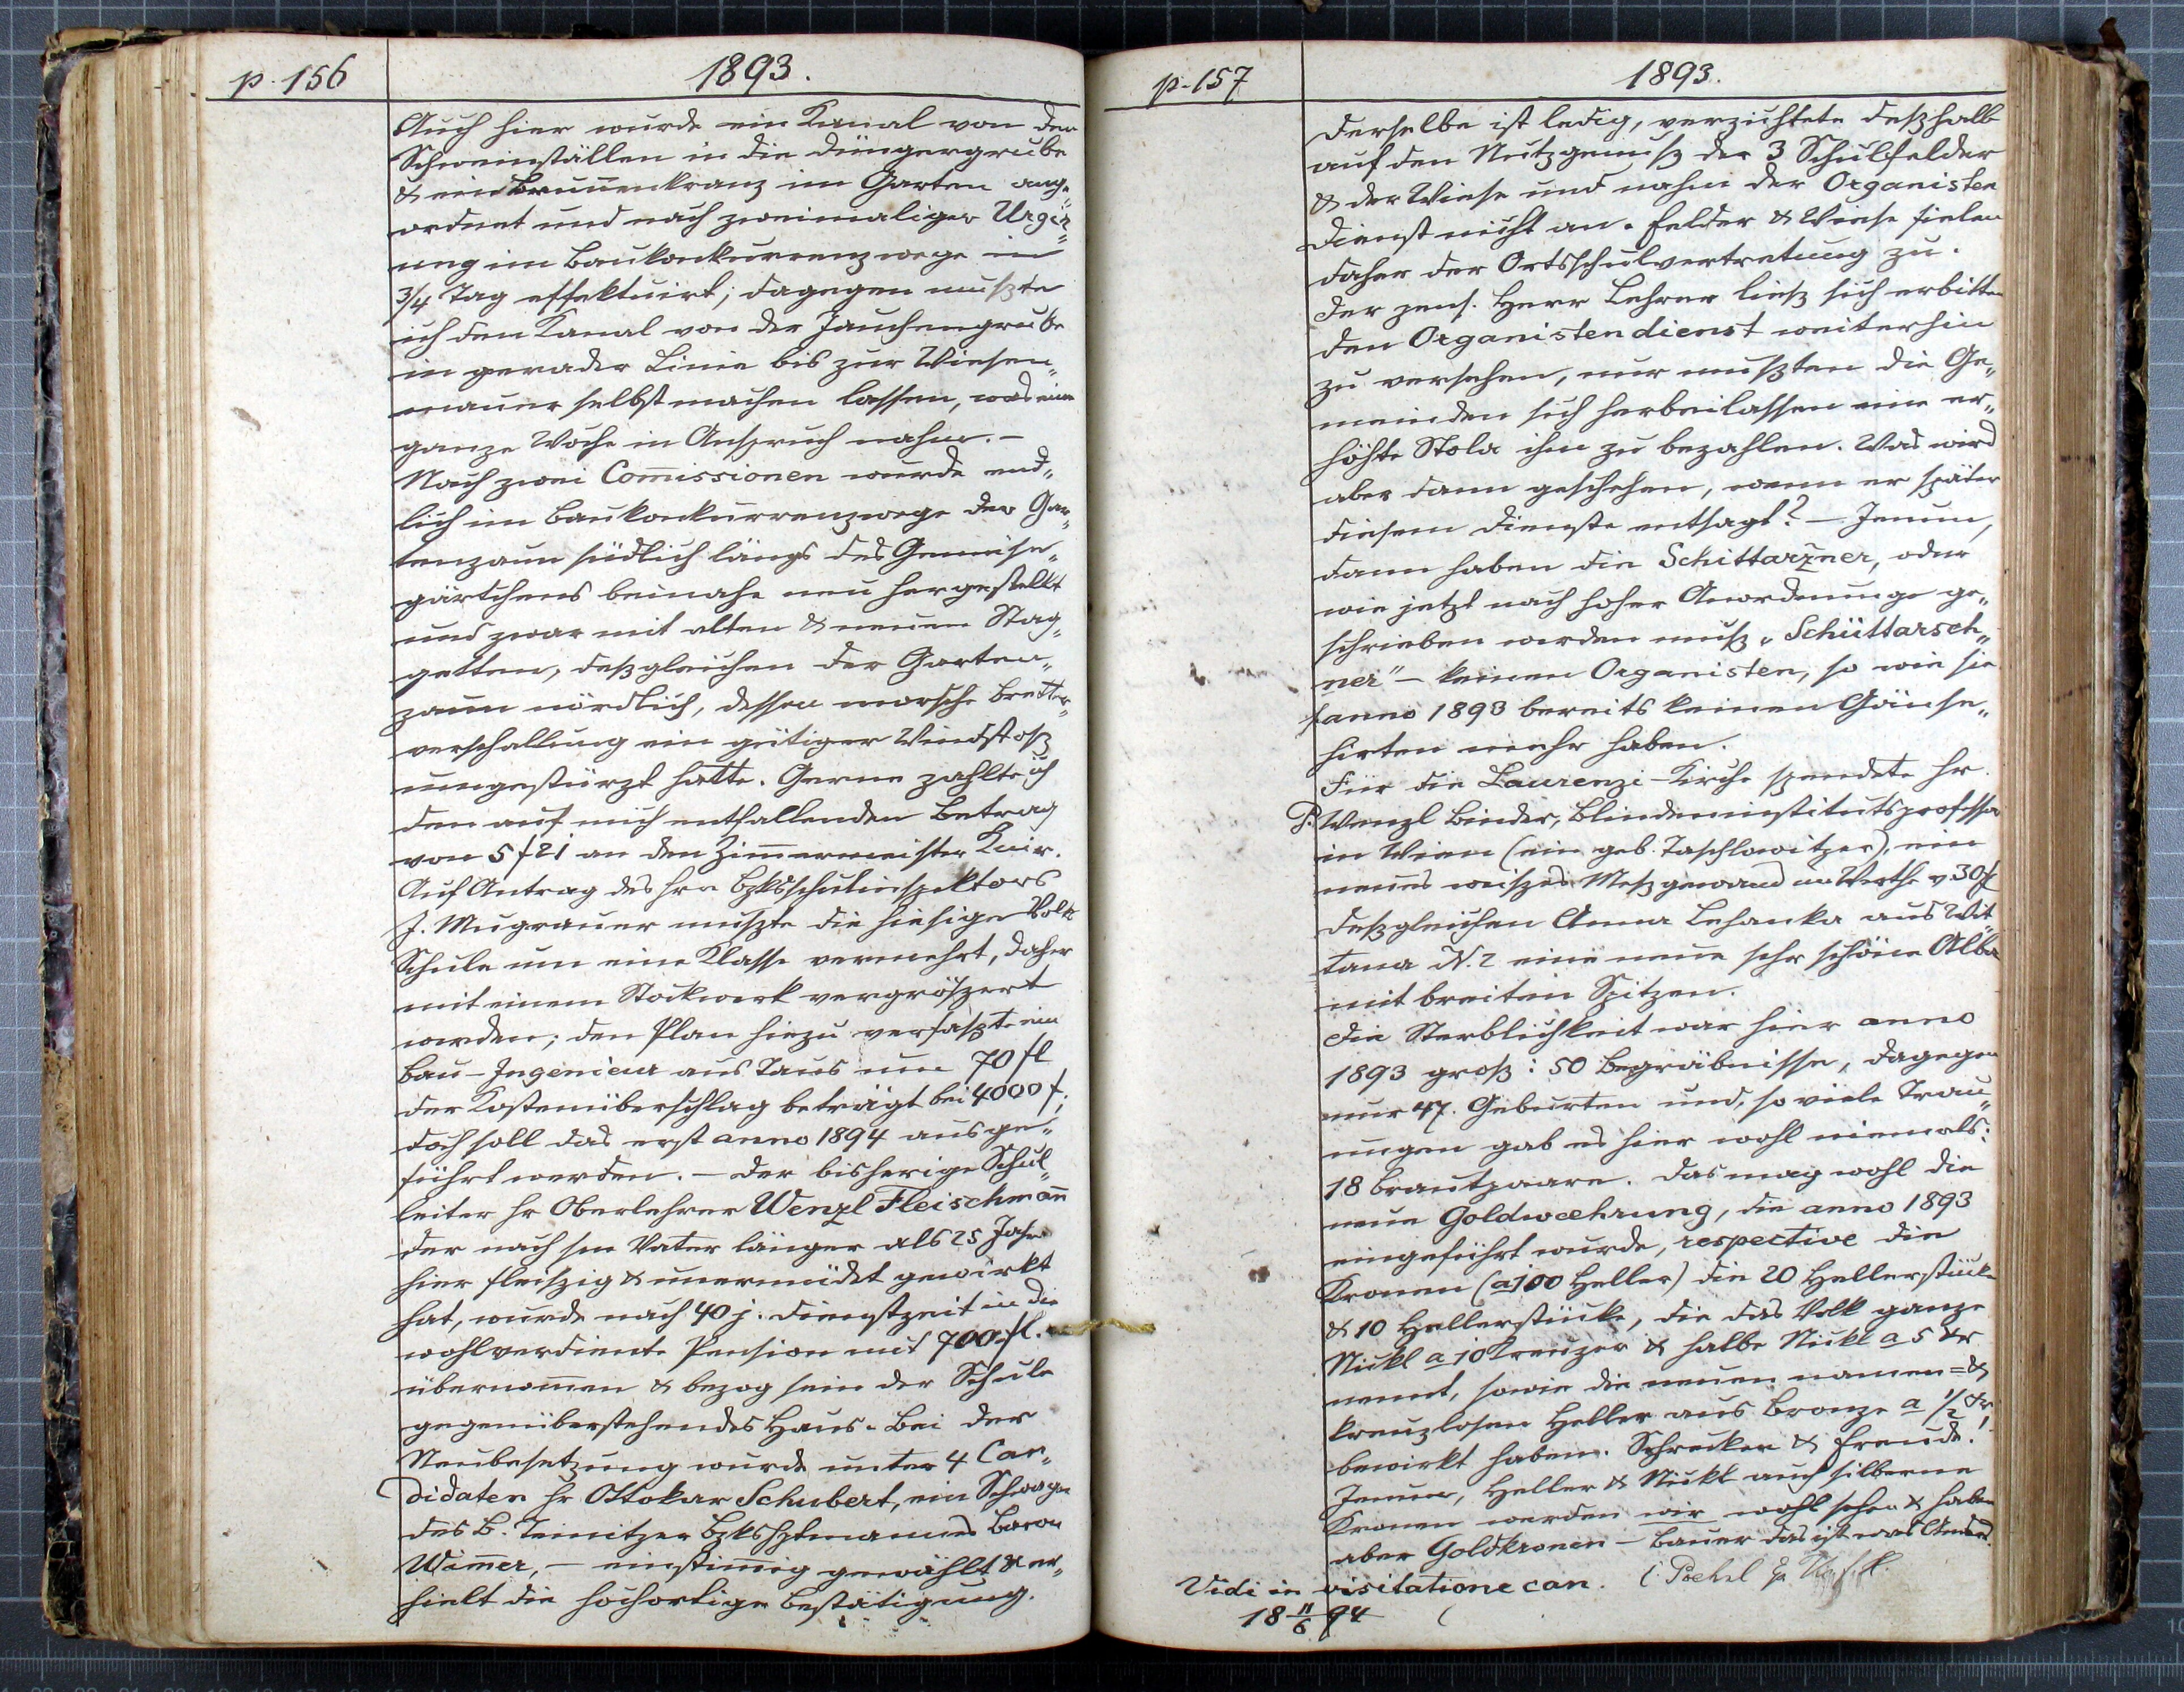 p. 156
1893.
Auch hier wurde ein Kanal von den
Schweinställen in die Düngergrube
& ein Brunnenkranz im Garten ange„
ordnet und nach zweimaliger Urgir„
ung im Baukonkurrenzwege in
3/4 Tag effektuirt; dagegen mußte
ich den Kanal von der Jauchengrube
in gerader Linie bis zur Wiesen„
mauer selbst machen lassen, was eine
ganze Woche in Anspruch nahm. –
Nach zwei Comissionen wurde end„
lich im Baukonkurrenzwege der Gar„
tenzaun südlich längs des Gemüse„
gärtchens beinahe neu hergestellt
und zwar mit alten & neuen Stag„
getten, deßgleichen der Garten„
zaun nördlich, dessen morsche Bretter„
verschallung ein gütiger Windstoß
umgestürzt hatte. Gerne zahlte ich
den auf mich entfallenden Betrag
von 5 f 21 an den Zimmermeister
Auf Antrag des Hrn Bzksschulinspektors
J. Mugrauer mußte die hiesige Volks
Schule um eine Klasse vermehrt, daher
mit einem Stockwerk vergrößert
werden; den Plan hiezu verfaßte ein
Bau-Ingenieur aus Taus um 70 fl
der Kostenüberschlag beträgt bei 4000 f;
doch soll das erst anno 1894 ausge„
führt werden. – Der bisherige Schul„
leiter Hr Oberlehrer Wenzl Fleischmann
der nach sn Vater länger als 25 Jahre
hier fleißig & unermüdet gewirkt
hat, wurde nach 40 j. Dienstzeit in die
wohlverdiente Pension mit 700 fl.
übernommen & bezog sein der Schule
gegenüberstehendes Haus. Bei der
Neubesetzung wurde unter 4 Can„
didaten Hr Ottokar Schubert, ein Schwager
des B. Teinitzer Bzkshptmannes Baron
Wimmer, – einstimmig gewählt & er„
hielt die hochortige Bestätigung.
p. 157
1893.
Derselbe ist ledig, verzichtete deßhalb
auf den Nutzgenuß der 3 Schulfelder
& der Wiese und nahm der Organisten
Dienst nicht an. Felder & Wiese fielen
daher der Ortsschulvertretung zu.
Der pens. Herr Lehrer ließ sich erbitten
den Organistendienst weiterhin
zu versehen, nur mußten die Ge„
meinden sich herbeilassen eine er„
höhte Stola ihm zu bezahlen. Was wird
aber dann geschehen, wenn er später
diesem Dienste entsagt? – Jenun,
dann haben die Schittaržner, oder
wie jetzt nach hoher Anordnunge ge„
schrieben werden muß „Schüttarsch„
ner" – keinen Organisten, so wie sie
anno 1893 bereits keinen Gänse„
hirten mehr haben.
Für die Laurenzi-Kirche spendete Hr.
P. Wenzl Binder, Blindeninstitutsprofessor
in Wien (ein geb. Taschlowitzer), ein
neues weißes Meßgewand im Werthe v 30 f
deßgleichen Anna Lehanka aus Wit„
tana N. 2 eine neue sehr schöne Alba
mit breiten Spitzen.
Die Sterblichkeit war hier anno
1893 groß: 50 Begräbnisse, dagegen
nur 47. Geburten und, so viele Trau„
ungen gab es hier wohl niemals:
18 Brautpaare. Das mag wohl die
neue Goldwaehrung, die anno 1893
eingeführt wurde, respective die
Kronen (a 100 Heller) die 20 Hellerstücke
& 10 Hellerstücke, die das Volk ganze
Nickl a 10 Kreuzer & halbe Nickl a 5 kr
nennt, sowie die neuen namen= &
kreuzlosen Heller aus Bronze a 1/2 kr
bewirkt haben. Schrecken & Freude!
Jenun, Heller & Nickl auch silberne
Kronen werden wir wohl sehen & haben
aber Goldkronen – Bauer das ist was Anderes.
Vidi in visitatione can.
18 11/6 94